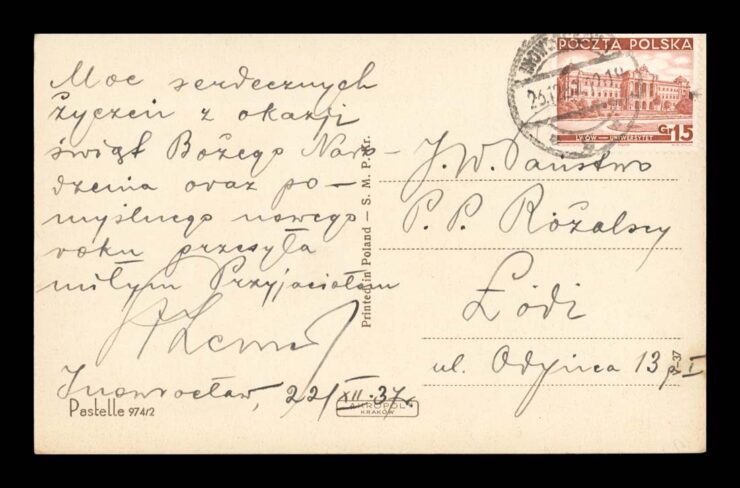 Moc serdecznych
życzeń z okazji
świąt Bożego Naro-
dzenia oraz po-
myślnego nowego
roku przesyła
miłym Przyjaciołom
Inowrocław, 22/XII.37.
Pastelle 974/2
Printed in Poland — S. M. P. Kr.
AKROPOL
KRAKÓW
POCZTA POLSKA
Gr 15
LWÓW — UNIWERSYTET
J. W. Państwo
P. P. Różalscy
Łódź
ul. Odyńca 13